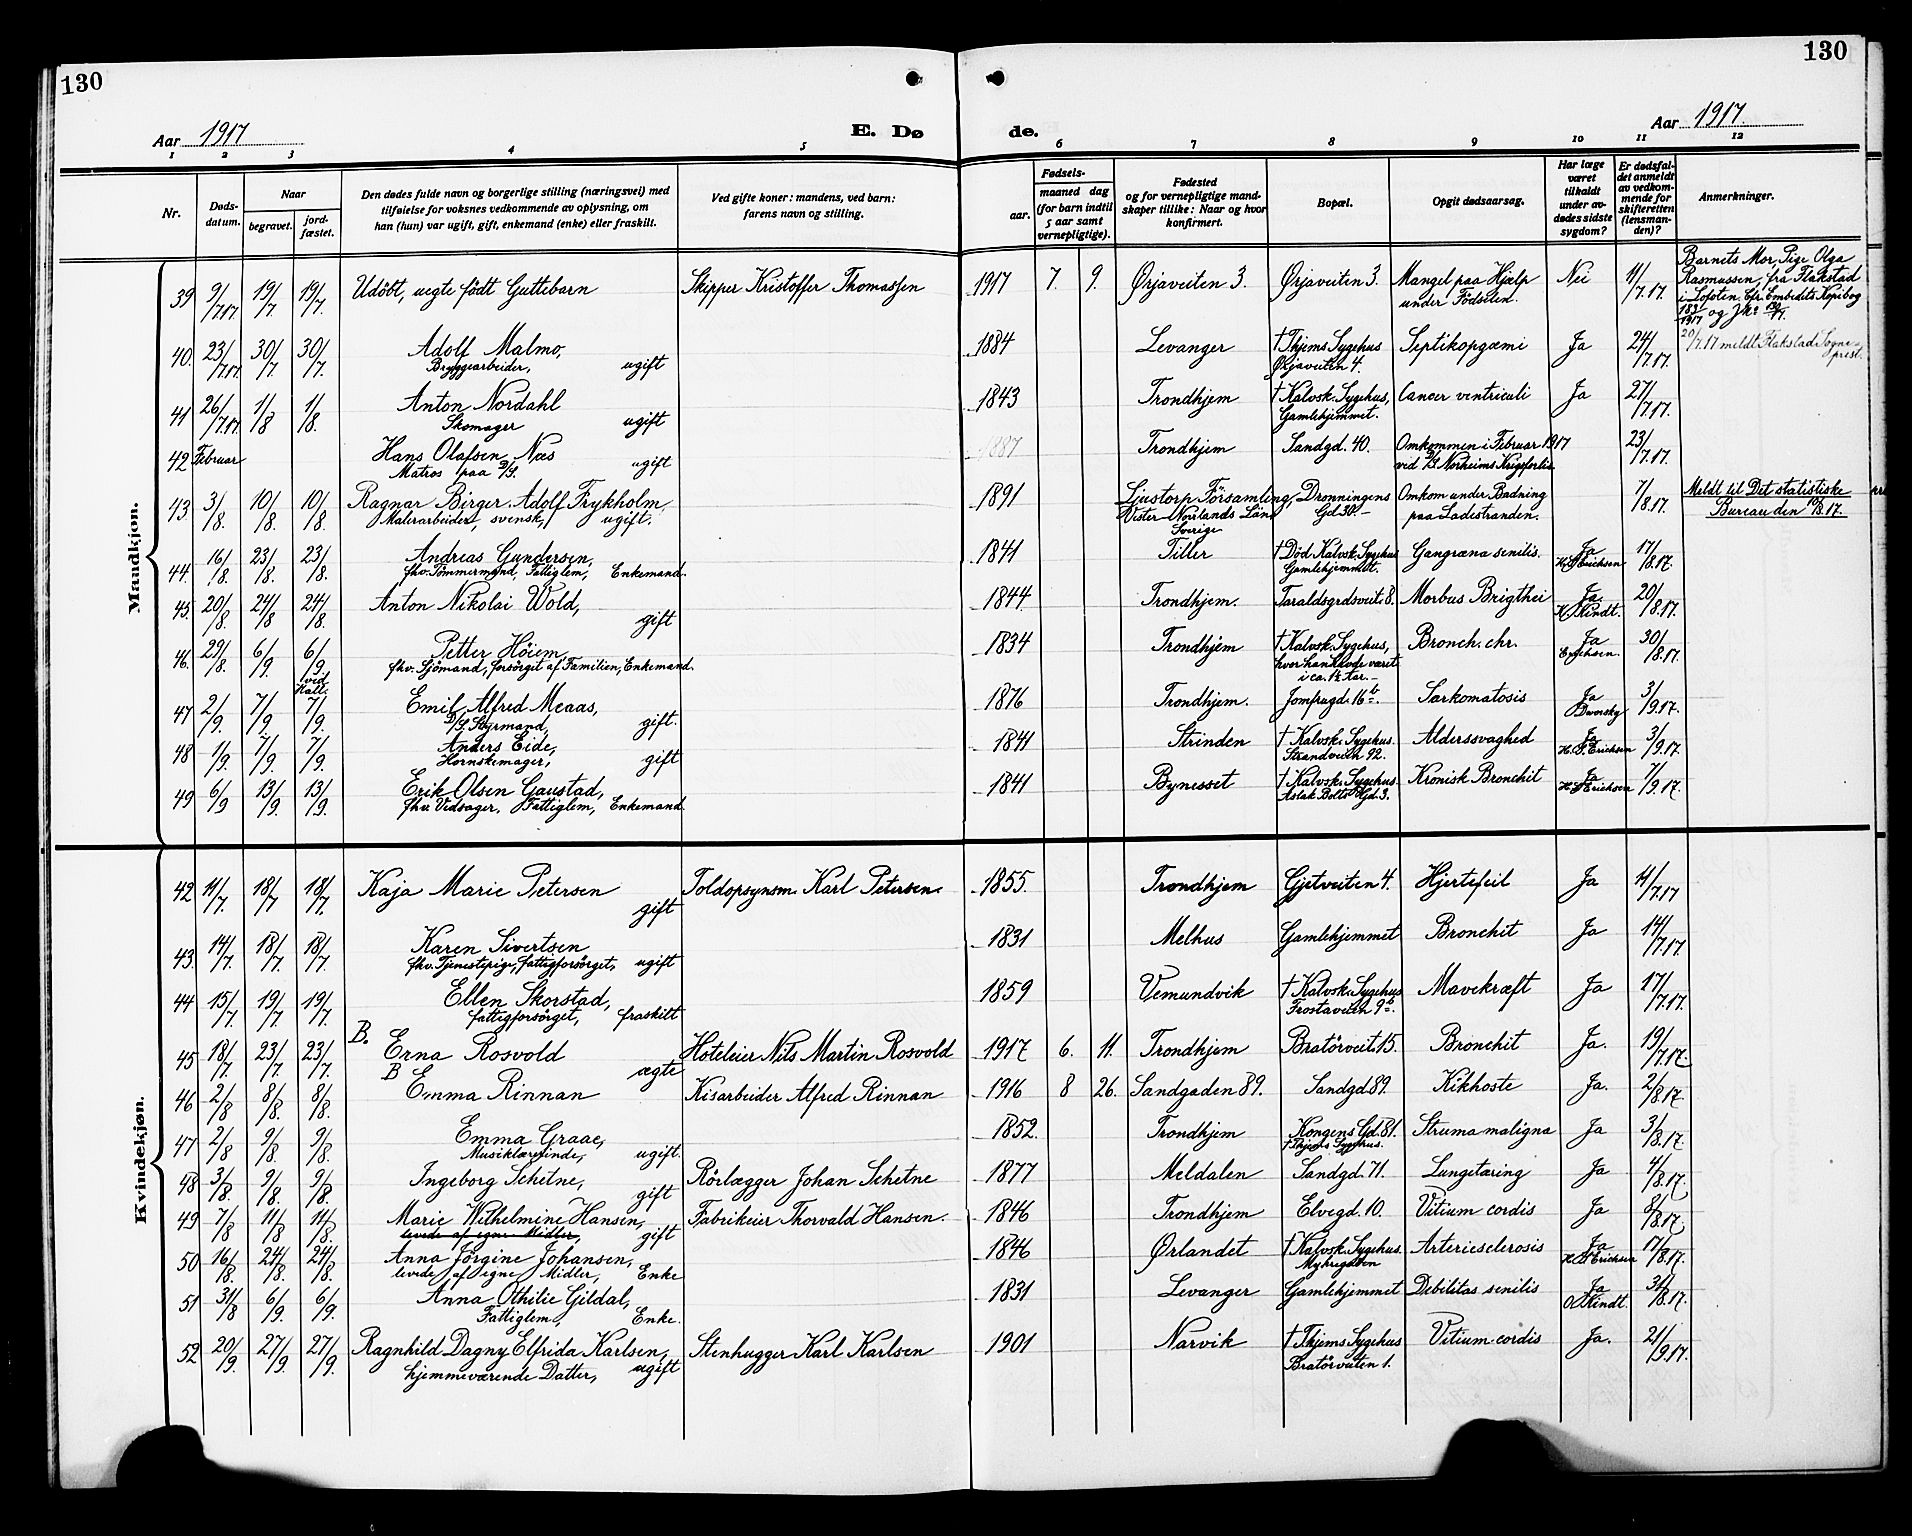 130
130
Aar 1917
E. Dø
de.
Aar 1917.
1 2 3 4 5 6 7 8 9 10 11 12
Nr.
Døds-
datum.
Naar
begravet.
jord-
fæstet.
Den dødes fulde navn og borgerlige stilling (næringsvei) med
tilføielse for voksnes vedkommende av oplysning, om
han (hun) var ugift, gift, enkemand (enke) eller fraskilt.
Ved gifte koner: mandens, ved barn:
farens navn og stilling.
Fødsels-
aar.
maaned dag
(for barn indtil
5 aar samt
vernepligtige).
Fødested
og for vernepligtige mand-
skaper tillike: Naar og hvor
konfirmert.
Bopæl.
Opgit dødsaarsag.
Har læge
været
tilkaldt
under av-
dødes sidste
sygdom?
Er dødsfal-
det anmeldt
av vedkom-
mende for
skifteretten
(lensman-
den)?
Anmerkninger.
Mandkjøn.
39 9/7.17. 19/7 19/7. Udöbt, uegte födt Guttebarn Skipper Kristoffer Thomassen 1917 7. 9. Ørjaveiten 3. Ørjaveiten 3. Mangel paa Hjælp Nei 11/7.17.
under Födselen.
Barnets Mor, Pige Olga
Rasmussen, fra Flakstad
i Lofoten. Cfr. Embedets Kopibog
183/1917 og
20/7.17 meldt Flakstad Sogne-
prest.
40. 23/7.17. 30/7. 30/7. Adolf Malmo, 1884 Levanger † Thjems Sygehus Septikopyæmi Ja 24/7.17.
Bryggearbeider, ugift Ørjaveiten 4.
41 26/7.17. 1/8 1/8. Anton Nordahl 1843 Trondhjem † Kalvsk. Sygehus, Cancer ventriculi Ja 27/7.17.
Skomager ugift Gamlehjemmet.
42 Februar Hans Olafsen Næs 1887 Trondhjem Sandgd. 40. Omkommen i Februar 1917 23/7.17.
Matros paa D/S. ugift ved D/S Norheims Krigsforlis
43 3/8. 10/8. 10/8. Ragnar Birger Adolf Frykholm, 1891 Ljustorp Församling, Dronningens Omkom under Badning 7/8.17. Meldt til Det statistiske
Malerarbeider, svensk, ugift. Vester Norrlands Län Gd 30. paa Ladestranden. Bureau den 10/8.17.
Sverige
44. 16/8. 23/8. 23/8. Andreas Gundersen, 1841 Tiller † Död Kalvsk. Sygehus Gangræna senilis. Ja 17/8.17.
fhv. Tömmermand, Fattiglem, Enkemand. Gamlehjemmet. H. S. Erichsen
45. 20/8 24/8 24/8. Anton Nikolai Wold, 1844. Trondhjem. Taraldsgrdsveit 8. Morbus Brigthei Ja. 20/8.17.
gift Kindt.
46. 29/8. 6/9. 6/9 Petter Höiem, 1834 Trondhjem † Kalvsk. Sygehus, Bronch. chr. Ja 30/8.17.
ved
fhv. Sjömand, forsörget af Familien, Enkemand. hvor han havde været Erichsen.
i ca. 1½ Aar.
47 2/9. 7/9. 7/9. Emil Alfred Meaas, 1876 Trondhjem. Jomfrugd. 16b. Sarkomatosis Ja 3/9.17.
D/S Styrmand, gift. Dworsky
48 1/9. 7/9. 7/9. Anders Eide, 1841 Strinden † Kalvsk. Sygehus. Alderssvaghed Ja 3/9.17.
gift Strandveien 92. H. S. Erichsen
49 6/9 13/9. 13/9. Erik Olsen Gaustad, 1841 Bynesset † i Kalvsk. Sygehus. Kronisk Bronchit Ja 7/9.17.
fhv. Vedsager, Fattiglem, Enkemand Aslak Bolts Gd. 3. H. S. Erichsen
Kvindekjøn.
42 11/7. 18/7 18/7. Kaja Marie Petersen Toldopsynsm. Karl Petersen. 1855. Trondhjem Gjetveiten 4. Hjertefeil Ja 11/7.17
gift
43. 14/7. 18/7. 18/7. Karen Sivertsen 1831 Melhus Gamlehjemmet Bronchit Ja 14/7.17.
fhv. Tjenestepige, fattigforsörget, ugift
44 15/7. 19/7. 19/7. Ellen Skorstad, 1859 Vemundvik † Kalvsk. Sygehus Mavekræft Ja 17/7.17.
fattigforsörget, fraskilt Frostaveiten 9b.
45 18/7. 23/7. 23/7. B. Erna Rosvold Hoteleier Nils Martin Rosvold 1917 6. 11. Trondhjem Bratörveit. 15. Bronchit Ja. 19/7.17.
ægte
46 2/8 8/8. 8/8. B Emma Rinnan Kisarbeider Alfred Rinnan 1916 8 26. Sandgaden 89. Sandgd. 89 Kikhoste Ja. 2/8.17.
47 2/8 9/8. 9/8. Emma Graae, 1852. Trondhjem Kongens Gd. 81. Struma maligna Ja 3/8.17.
Musiklærerinde, ugift. † Thjems Sygehus.
48 3/8. 9/8. 9/8. Ingeborg Schetne, Rörlægger Johan Schetne 1877 Meldalen Sandgd. 71. Lungetæring Ja 4/8.17.
gift
49 7/8 11/8 11/8. Marie Wilhelmine Hansen, Fabrikeier Thorvald Hansen. 1846 Trondhjem Elvegd. 10. Vitium cordis Ja 8/8.17.
levede af egne Midler, gift
50 16/8. 24/8. 24/8. Anna Jörgine Johansen, 1846 Ørlandet † Kalvsk. Sygehus. Arteriesclerosis Ja 17/8.17.
levede af egne Midler, Enke H. S. Erichsen
51 31/8 6/9. 6/9. Anna Othilie Gildal, 1831 Levanger Gamlehjemmet Debilitas senilis Ja 31/8.17.
Fattiglem, Enke. Kindt.
52 20/9. 27/9. 27/9. Ragnhild Dagny Elfrida Karlsen, Stenhugger Karl Karlsen 1901 Narvik † Thjems Sygehus Vitium cordis Ja. 21/9.17.
hjemmeværende Datter, ugift Bratörveiten 1.